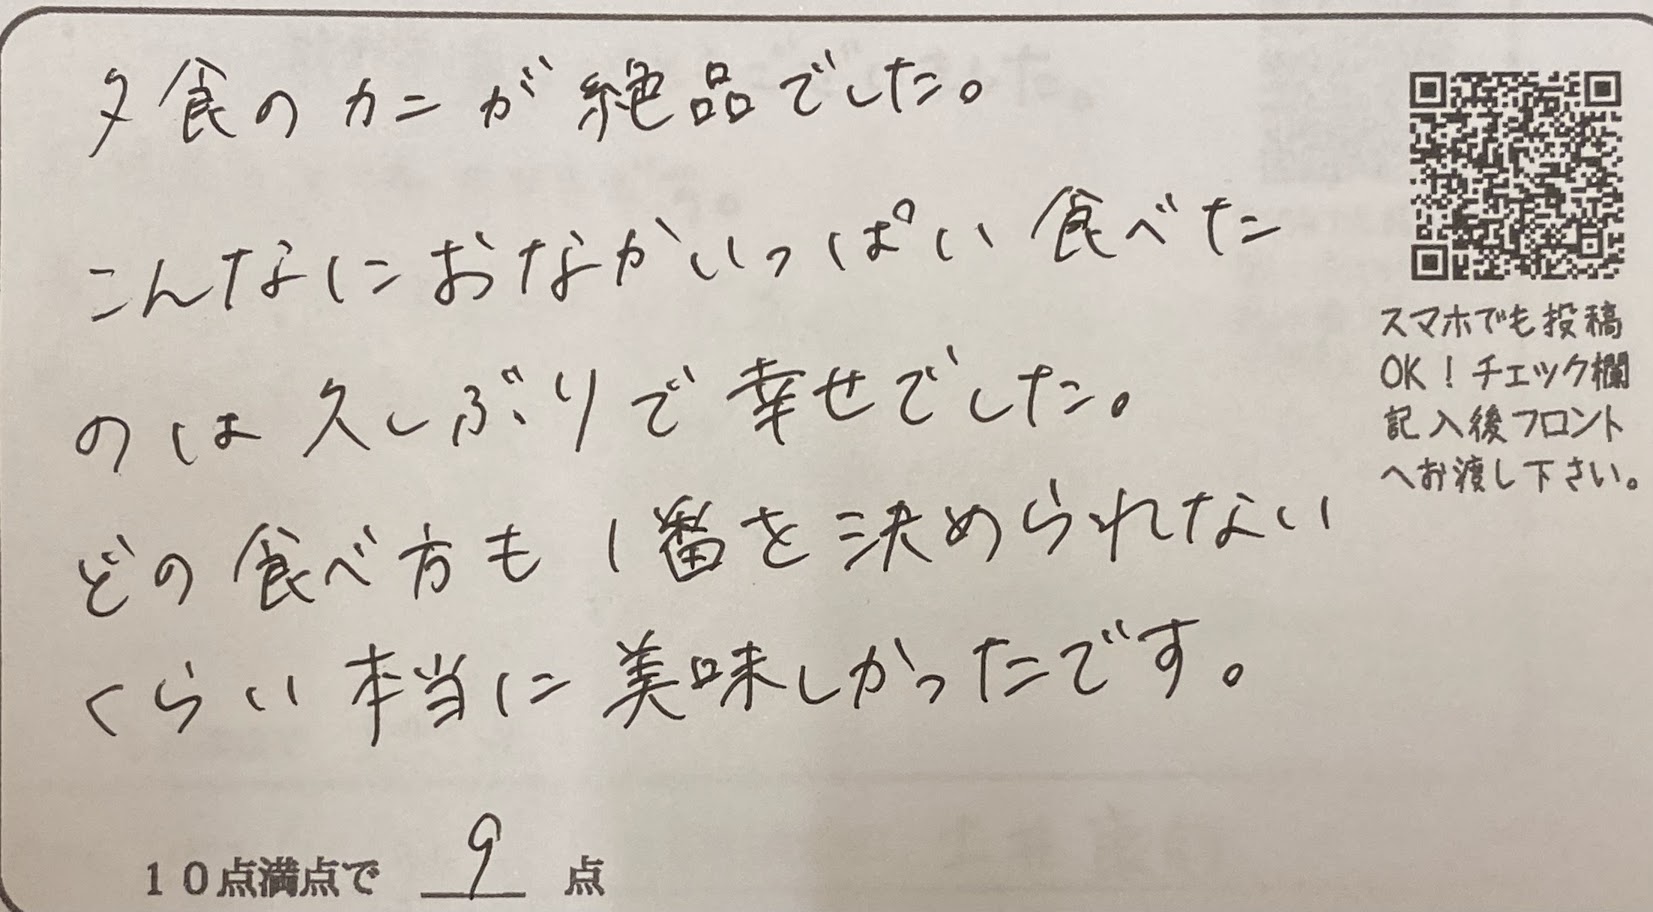 夕食のカニが絶品でした。
こんなにおなかいっぱい食べた
のは久しぶりで幸せでした。
どの食べ方も1番を決められない
くらい本当に美味しかったです。
スマホでも投稿
OK！チェック欄
記入後フロント
へお渡し下さい。
10点満点で 9 点